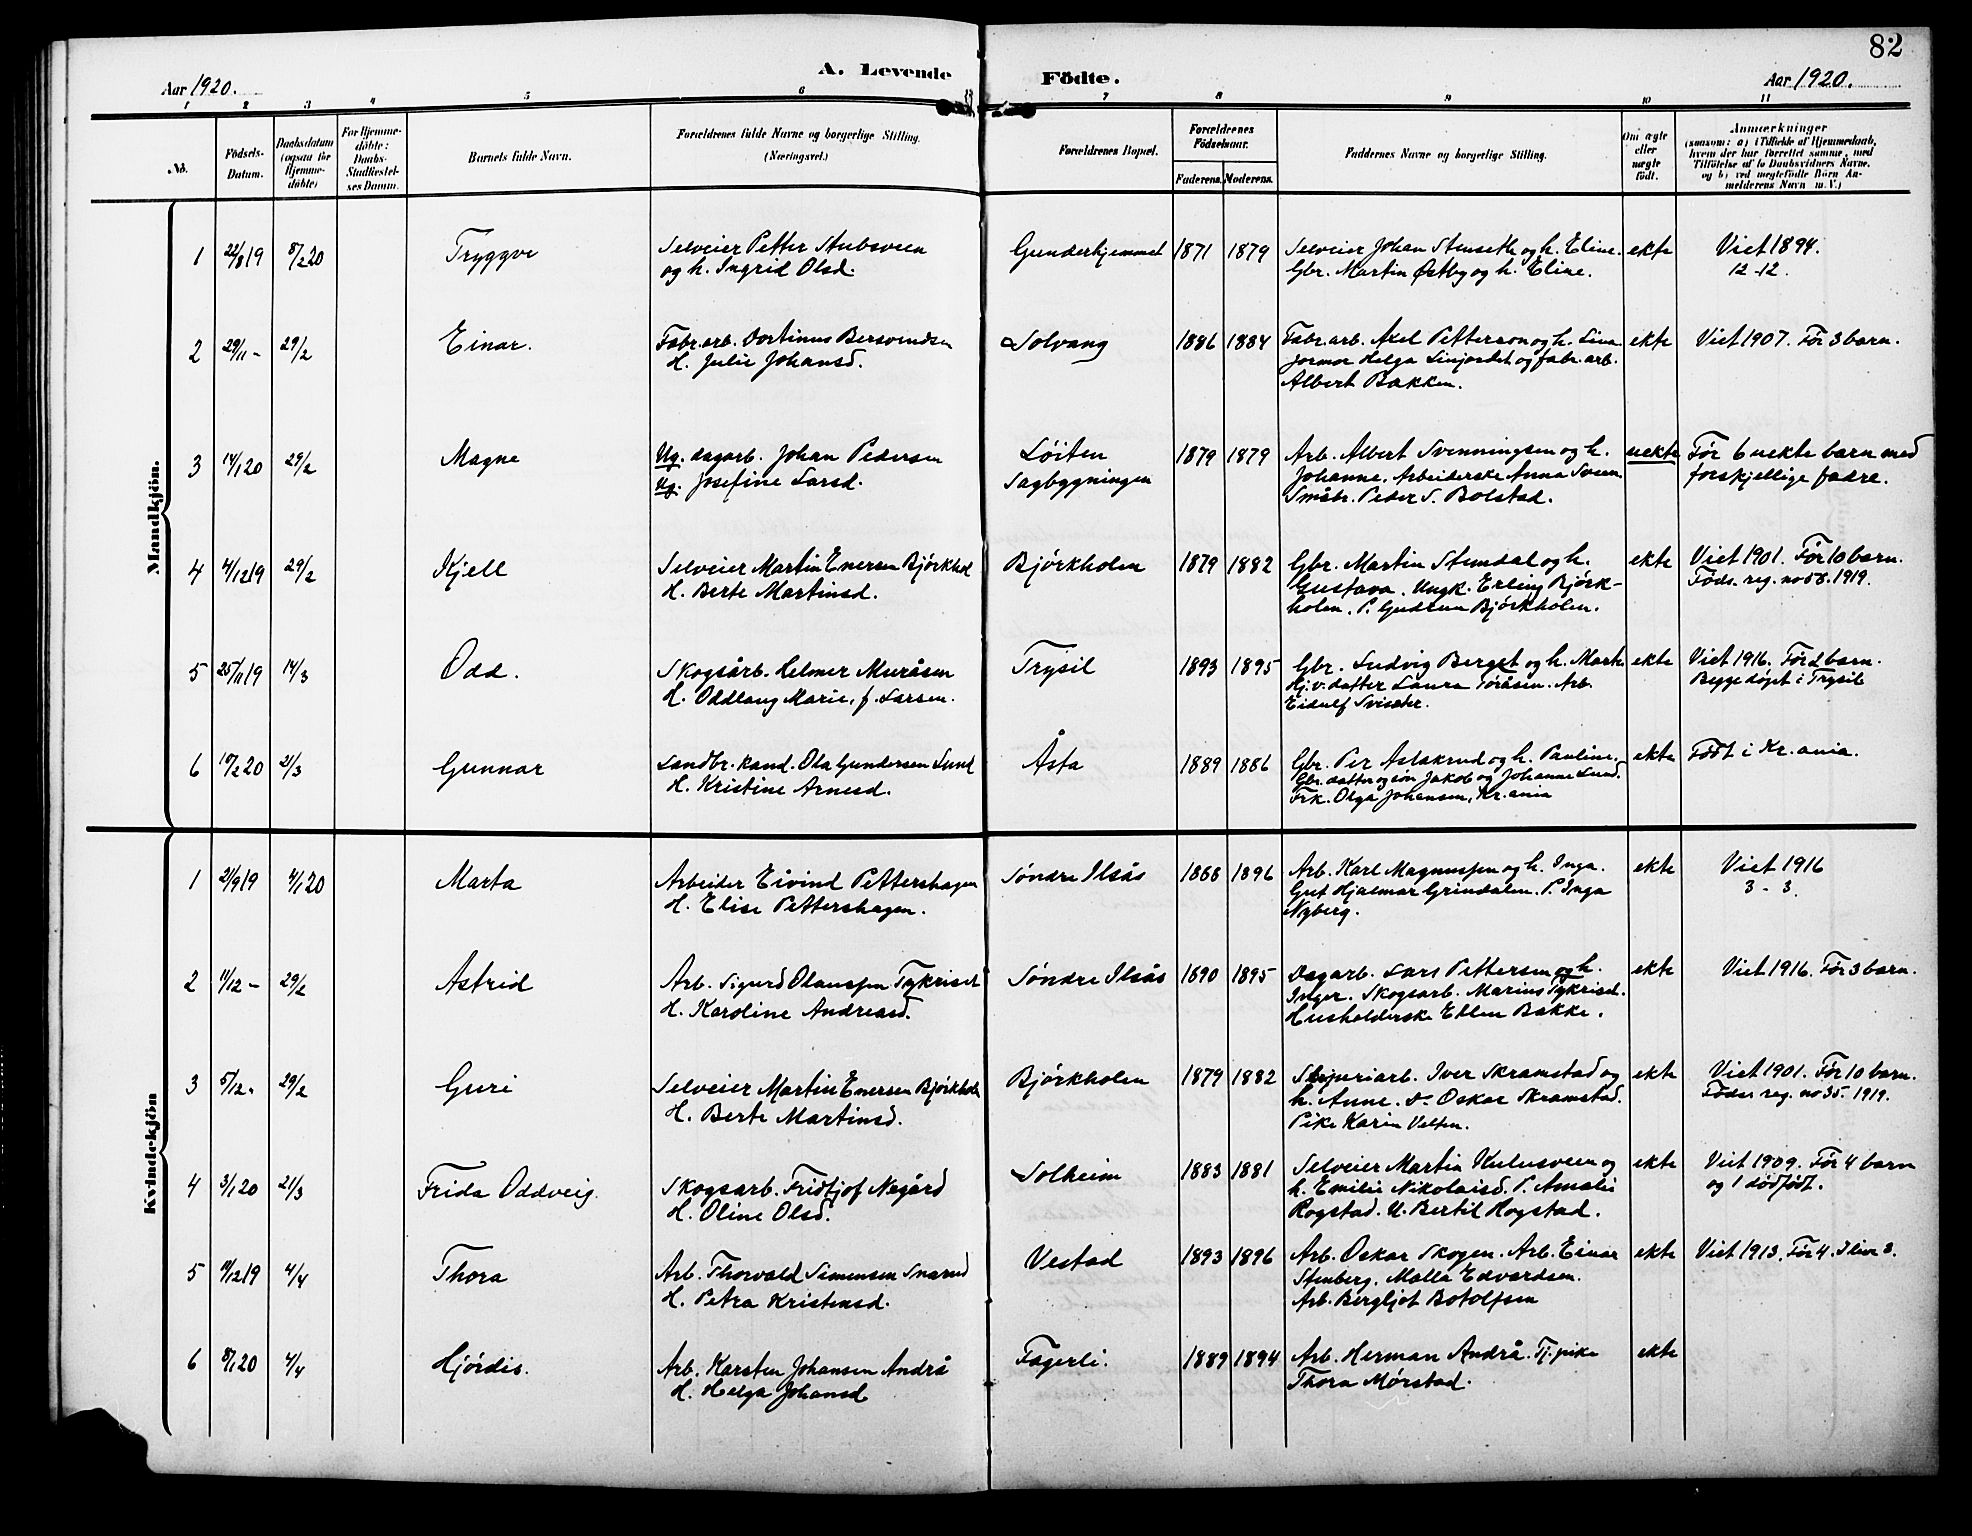 82
A. Levende Födte.
Aar 1920.
Aar 1920.
1 2 3 4 5 6 7 8 9 10 11
No.
Födsels-Datum.
Daabsdatum (ogsaa for Hjemme-döbte)
For Hjemme-döbte: Daabs-Stadfæstel-ses Datum.
Barnets fulde Navn.
Forældrenes fulde Navne og borgerlige Stilling. (Næringsvei.)
Forældrenes Bopæl.
Forældrenes Födselsaar.
Faderens. Moderens.
Faddernes Navne og borgerlige Stilling.
Om ægte eller uægte födt.
Anmærkninger
(saasom: a) i Tilfælde af Hjemmedaab,
hvem der har forrettet samme, med
Tilföielse af to Daabsvidners Navne,
og b) ved uægtefödte Börn An-
melderens Navn m. V.)
Mandkjön.
1 22/8 19 8/2 20 Tryggve Selveier Petter Stubsveen Gunderhjemmet 1871 1879 Selveier Johan Stenseth og h. Eline. ekte Viet 1894.
og h. Ingrid Olsd. Gbr. Martin Østby og h. Eline. 12-12.
2 29/11 - 29/2 Einar. Fabr. arb. Bersvendsen Solvang 1886 1884 Fabr. arb. Axel Petterson og h. Lina ekte Viet 1907. Før 3 barn.
H. Julie Johansd. Helga Linjordet og fabr. arb.
Albert Bakken.
3 14/1 20 29/2 Magne Ug. dagarb. Johan Pedersen Løiten 1879 1879 Arb. Albert Svenningsen og h. uekte Før 6 uekte barn med
Ug. Josefine Larsd. Sagbygningen Johanne. Arbeiderske Anna Sveen forskjellige fædre.
Småbr. Peder S. Bolstad.
4 4/12 19 29/2 Kjell Selveier Martin Enersen Bjørkhol Bjørkholen 1879 1882 Gbr. Martin Stendal og h. ekte Viet 1901. Før 10 barn.
H. Berte Martinsd. Gustava. Ungk. Erling Bjørk- Føds. reg. no 58. 1919.
holen. P. Gudrun Bjørkholen.
5 25/11 19 14/3 Odd. Skogsarb. Helmer Muråsen Trysil 1893 1895 Gbr. Ludvig Berget og h. Marth ekte Viet 1916. Før 2 barn.
H. Oddlaug Marie, f. Larsen. Hj. v. datter Laura Toråsen. Arb. Begge døpt i Trysil
Eidulf
6 19/2 20 21/3 Gunnar Landbr. kand. Ola Gundersen Lund Åsta 1889 1886 Gbr. Per Aslakrud og h. Pauline. ekte Født i Kr.ania.
H. Kristine Arnesd. Gbr. datter og søn Jakob og Johanne Lund.
Frk. Olga Johansen, Kr.ania
Kvindekjön
1 21/9 19 4/1 20 Marta Arbeider Eivind Pettershagen Søndre Ilsås 1888 1896 Arb. Karl Magnussen og h. Inga. ekte Viet 1916
H. Elise Pettershagen. Gut Hjalmar Grindalen. P. Inga 3 - 3.
Nyberg.
2 11/12 - 29/2 Astrid Arb. Sigurd Olaussen Tykriset Søndre Ilsås 1890 1895 Dagarb. Lars Pettersen og h. ekte Viet 1916. Før 3 barn.
H. Karoline Andreasd. Inger. Skogsarb. Marius Tykriset.
Husholderske Ellen Bakke.
3 5/12 " 29/2 Guri Selveier Martin Enersen Bjørkhol Bjørkholen 1879 1882 Sliperiarb. Iver Skramstad og ekte Viet 1901. Før 10 barn.
H. Berte Martinsd. h. Anne. S. Oskar Skramstad. Føds. reg. no 35. 1919.
Pike Karin Velten.
4 3/1 20 21/3 Frida Oddveig. Skogsarb. Fridtjof Nøgård Solheim 1883 1881 Selveier Martin Kulusveen og ekte Viet 1909. Før 4 barn
H. Oline Olsd. h. Emilie Nikolaisd. P. Amalie og 1 dødfødt.
Rogstad. U. Bertil Rogstad.
5 11/12 19 4/4 Thora Arb. Thorvald Simensen Snarud Vestad 1893 1896 Arb. Oskar Skogen. Arb. Einar ekte Viet 1913. Før 4. I live 3.
H. Petra Kristensd. Stenberg. Malla Edvardsen.
Arb. Bergljot Botolfsen
6 8/1 20 4/4 Hjørdis. Arb. Karsten Johansen Andrå Fagerli. 1889 1894 Arb. Herman Andrå. Tj. pike ekte
H. Helga Johansd Thora Mørstad.